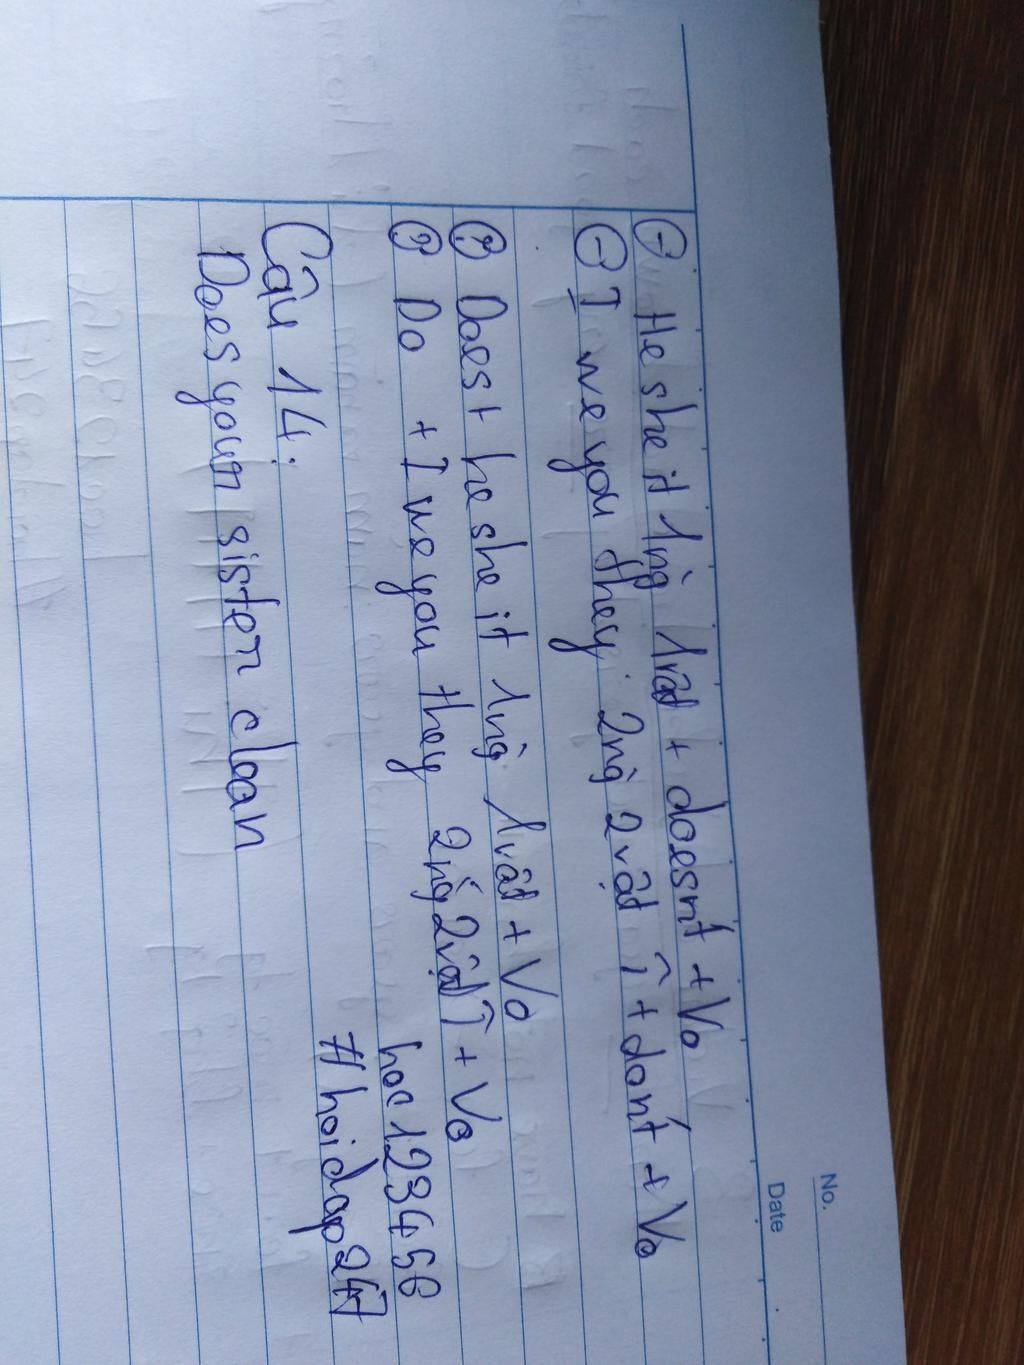 No.
Date
⊖ He she it 1ng̀ 1vật + doesn't + Vo
⊖ I we you they 2ng̀ 2vật ↑ + don't + Vo
? Does + he she it 1ng̀ 1vật + Vo
? Do + I we you they 2ng̀ 2vật ↑ + Vo
hoc123456
#hoidap247
Câu 14:
Does your sister clean